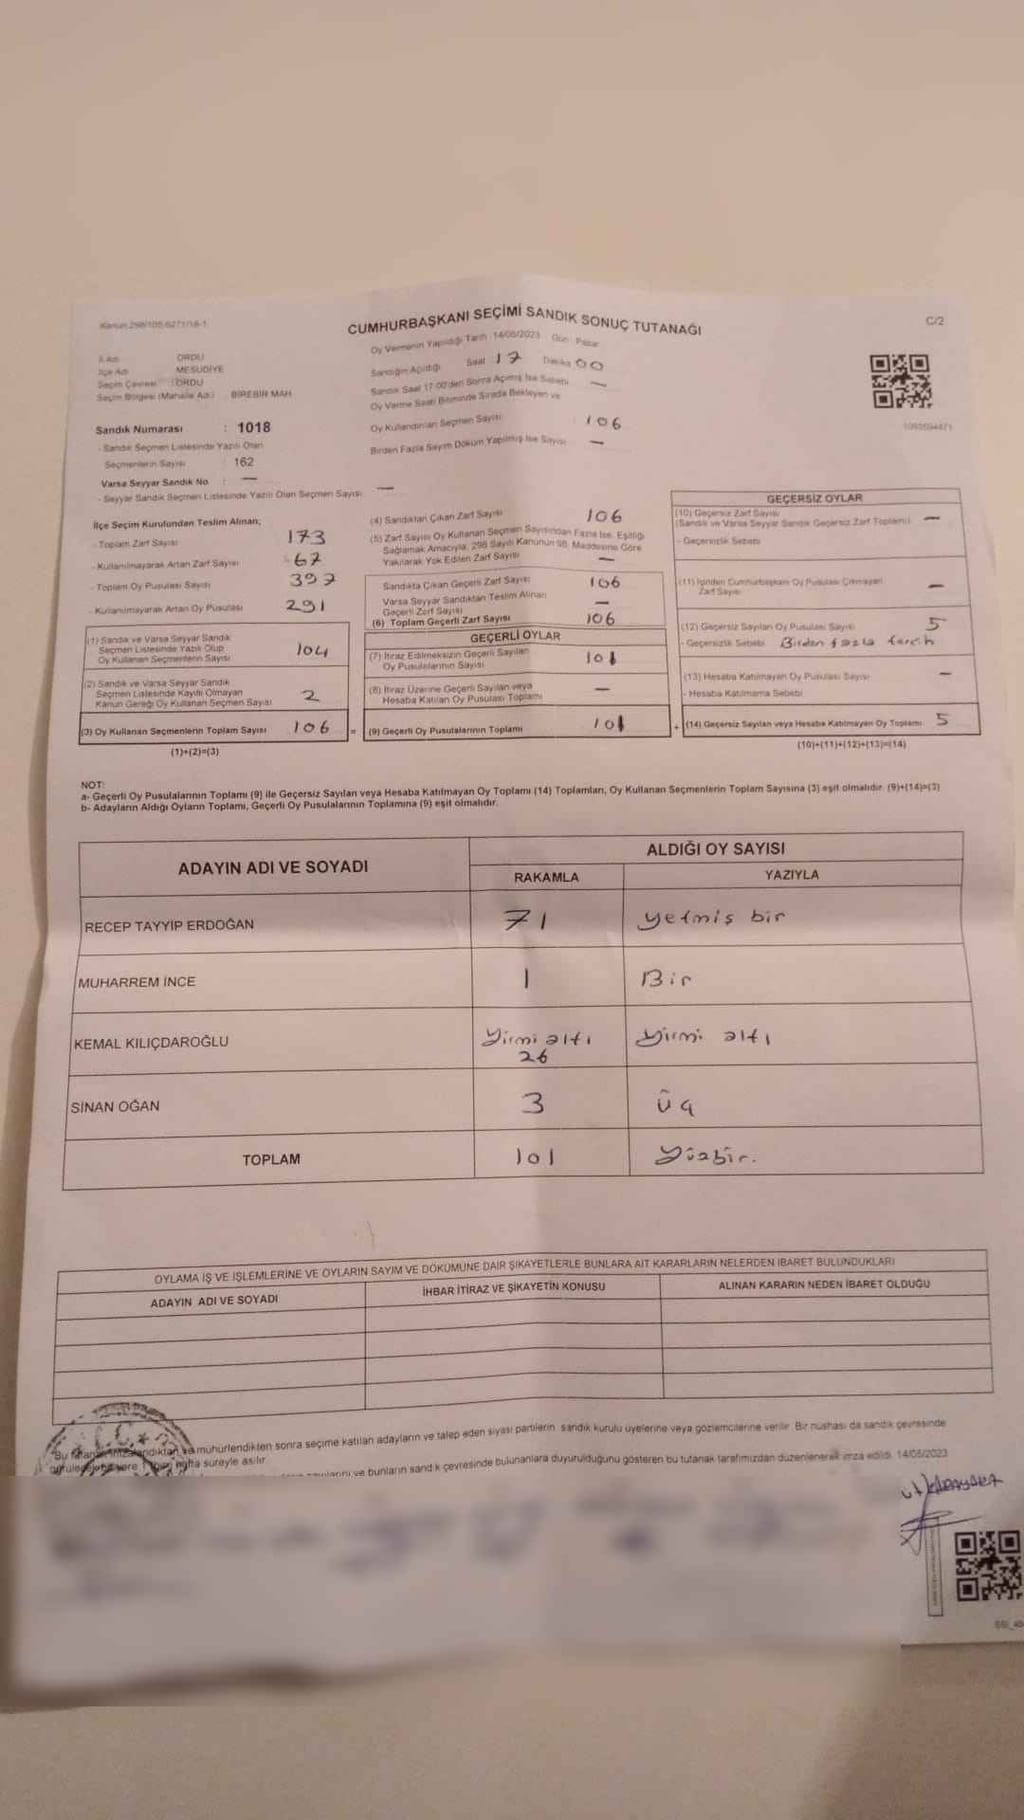 Kanun 298/105-6271/18-1
CUMHURBAŞKANI SEÇİMİ SANDIK SONUÇ TUTANAĞI
C/2
Oy Vermenin Yapıldığı Tarih 14/05/2023 Gün: Pazar
İl Adı ORDU
İlçe Adı MESUDİYE
Seçim Çevresi : ORDU
Seçim Bölgesi (Mahalle Adı) BİREBİR MAH
Sandığın Açıldığı Saat 17 Dakika 00
Sandık Saat 17:00'den Sonra Açılmış İse Sebebi —
Oy Verme Saati Bitiminde Sırada Bekleyen ve
Oy Kullandırılan Seçmen Sayısı : 106
Birden Fazla Sayım Döküm Yapılmış İse Sayısı —
Sandık Numarası : 1018
- Sandık Seçmen Listesinde Yazılı Olan
Seçmenlerin Sayısı : 162
Varsa Seyyar Sandık No : —
- Seyyar Sandık Seçmen Listesinde Yazılı Olan Seçmen Sayısı —
İlçe Seçim Kurulundan Teslim Alınan;
- Toplam Zarf Sayısı 173
- Kullanılmayarak Artan Zarf Sayısı 67
- Toplam Oy Pusulası Sayısı 397
- Kullanılmayarak Artan Oy Pusulası 291
(1) Sandık ve Varsa Seyyar Sandık
Seçmen Listesinde Yazılı Olup
Oy Kullanan Seçmenlerin Sayısı 104
(2) Sandık ve Varsa Seyyar Sandık
Seçmen Listesinde Kayıtlı Olmayan
Kanun Gereği Oy Kullanan Seçmen Sayısı 2
(3) Oy Kullanan Seçmenlerin Toplam Sayısı 106
(1)+(2)=(3)
(4) Sandıktan Çıkan Zarf Sayısı 106
(5) Zarf Sayısı Oy Kullanan Seçmen Sayısından Fazla İse, Eşitliği
Sağlamak Amacıyla, 298 Sayılı Kanunun 98. Maddesine Göre
Yakılarak Yok Edilen Zarf Sayısı —
Sandıkta Çıkan Geçerli Zarf Sayısı 106
Varsa Seyyar Sandıktan Teslim Alınan
Geçerli Zarf Sayısı —
(6) Toplam Geçerli Zarf Sayısı 106
GEÇERLİ OYLAR
(7) İtiraz Edilmeksizin Geçerli Sayılan
Oy Pusulalarının Sayısı 101
(8) İtiraz Üzerine Geçerli Sayılan veya
Hesaba Katılan Oy Pusulası Toplamı —
= (9) Geçerli Oy Pusulalarının Toplamı 101
GEÇERSİZ OYLAR
(10) Geçersiz Zarf Sayısı
(Sandık ve Varsa Seyyar Sandık Geçersiz Zarf Toplamı) —
- Geçersizlik Sebebi
(11) İçinden Cumhurbaşkanı Oy Pusulası Çıkmayan
Zarf Sayısı —
(12) Geçersiz Sayılan Oy Pusulası Sayısı 5
- Geçersizlik Sebebi Birden fazla tercih
(13) Hesaba Katılmayan Oy Pusulası Sayısı —
- Hesaba Katılmama Sebebi
+ (14) Geçersiz Sayılan veya Hesaba Katılmayan Oy Toplamı 5
(10)+(11)+(12)+(13)=(14)
NOT:
a- Geçerli Oy Pusulalarının Toplamı (9) ile Geçersiz Sayılan veya Hesaba Katılmayan Oy Toplamı (14) Toplamları, Oy Kullanan Seçmenlerin Toplam Sayısına (3) eşit olmalıdır. (9)+(14)=(3)
b- Adayların Aldığı Oyların Toplamı, Geçerli Oy Pusulalarının Toplamına (9) eşit olmalıdır.
ADAYIN ADI VE SOYADI ALDIĞI OY SAYISI
RAKAMLA YAZIYLA
RECEP TAYYİP ERDOĞAN 71 yetmiş bir
MUHARREM İNCE 1 Bir
KEMAL KILIÇDAROĞLU Yirmi altı 26 Yirmi altı
SİNAN OĞAN 3 üç
TOPLAM 101 Yüzbir.
OYLAMA İŞ VE İŞLEMLERİNE VE OYLARIN SAYIM VE DÖKÜMÜNE DAİR ŞİKAYETLERLE BUNLARA AİT KARARLARIN NELERDEN İBARET BULUNDUKLARI
ADAYIN ADI VE SOYADI İHBAR İTİRAZ VE ŞİKAYETİN KONUSU ALINAN KARARIN NEDEN İBARET OLDUĞU
mühürlendikten sonra seçime katılan adayların ve talep eden siyasi partilerin sandık kurulu üyelerine veya gözlemcilerine verilir. Bir nüshası da sandık çevresinde
hafta süreyle asılır.
ve bunların sandık çevresinde bulunanlara duyurulduğunu gösteren bu tutanak tarafımızdan düzenlenerek imza edildi. 14/05/2023